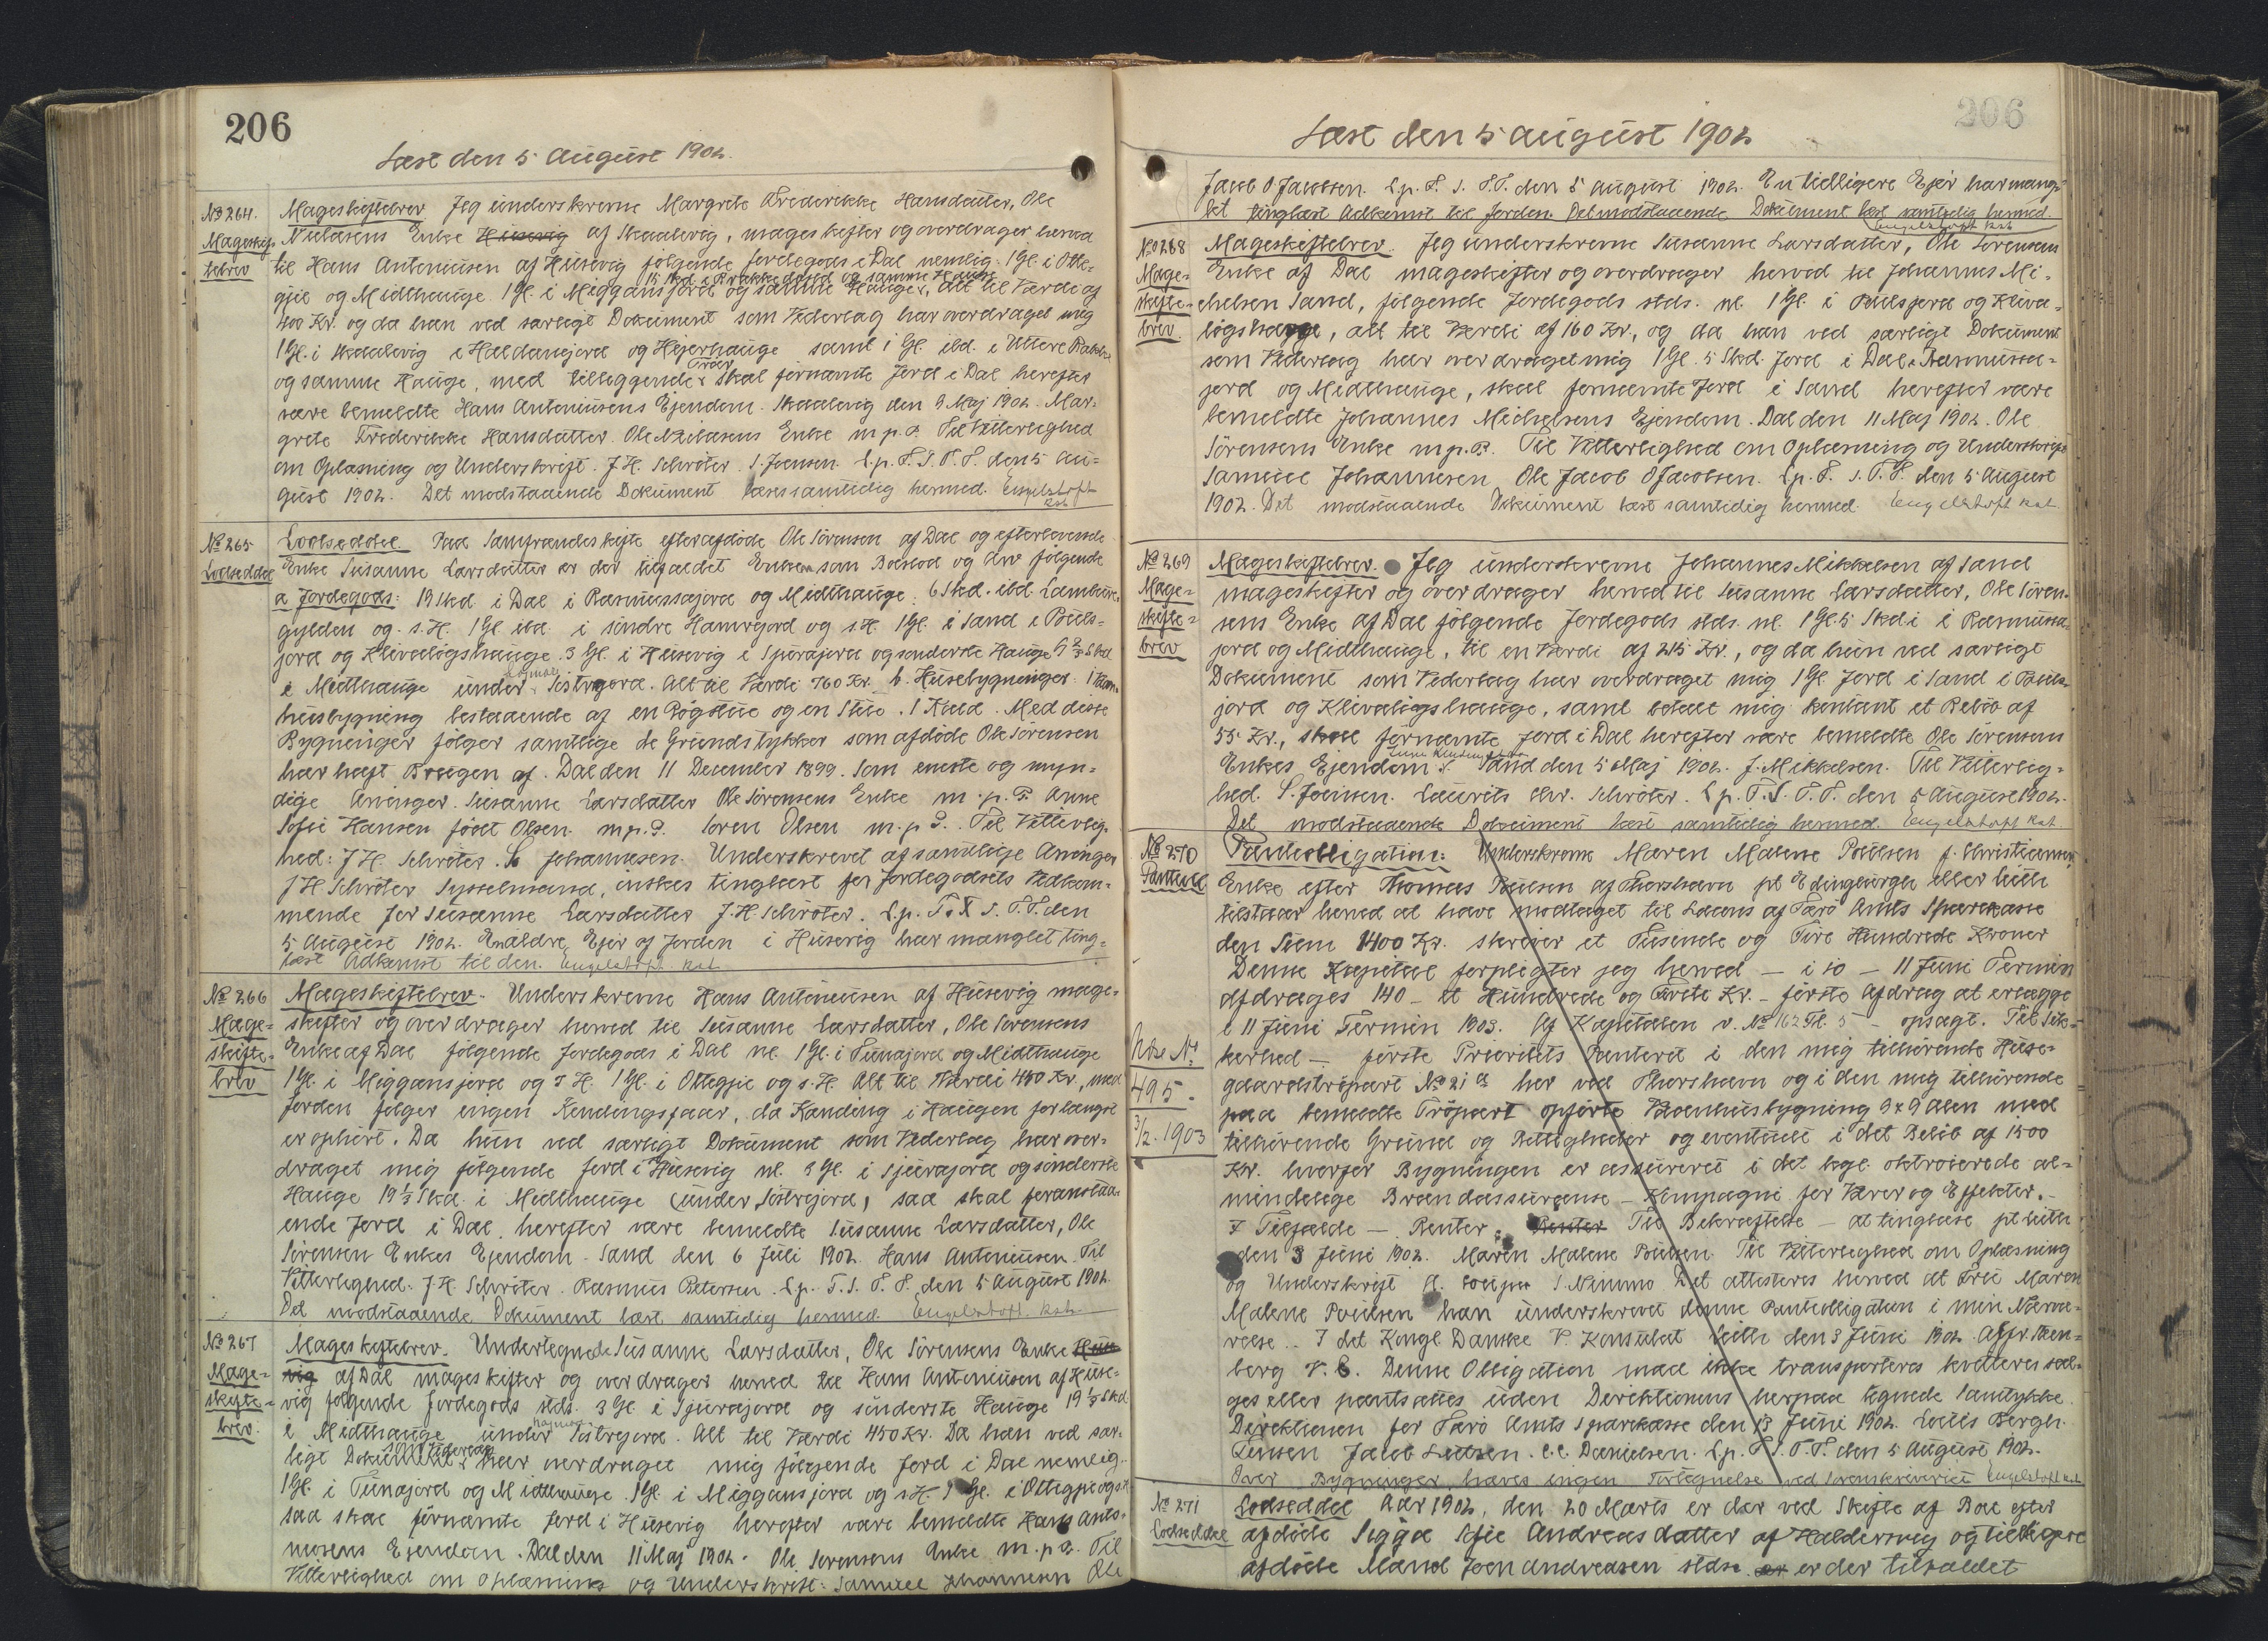 206
Læst den 5 August 1902.
No 264.
Mageskif-
tebrev
Mageskiftebrev Jeg underskrevne Margrete Frederikke Hansdatter, Ole
Nielasens Enke Husevig af Skaalevig, mageskifter og overdrager herved
til Hans Anteniusen af Husevig følgende Jordegods i Dal nemlig 1 Gl. i Otte-
15 Skd. i og samme Hauge
gjie og Midthauge. 1 Gl. i Miggansjord og samme Hauge, alt til Værdi af
400 Kr. og da han ved særligt Dokument som Vederlag har overdraget mig
1 Gl. i Skaalevig i Haldanejord og Hejerhauge samt 1 Gl. ibd. i Uttere
og samme Hauge, med tilliggende Skal fornævnte Jord i Dal herefter
være bemeldte Hans Anteniusens Ejendom. Skaalevig den 9 Maj 1902. Mar-
grete Frederikke Hansdatter. Ole Nielasens Enke m.p.P. Til Vitterlighed
om Oplæsning og Underskrift. J.H. Schrøter. S. Joensen. L.p.F.S.T.P. den 5 Au-
gust 1902. Det modstaaende Dokument læses samtidig hermed. Engelstoft
Kst.
No 265
Lodseddel
Lodseddel. Paa Samfrændeskifte efter afdøde Ole Sørensen af Dal og efterlevende
Enke Susanne Larsdatter er der tilfaldet Enken som Boeslod og Arv følgende
a Jordegods: 19 Skd. i Dal i Rasmussajord og Midthauge. 6 Skd. ibd.
gylden og s.H. 1 Gl. ibd. i sindre Hamrejord og s.H. 1 Gl. i Sand i Pouls-
jord og Klivaløgshauge. 3 Gl. i Husevig i Spurajord og sønderste Hauge 9 2/3 Skd.
i Midthauge under Sistrejord. Alt til Værdi 760 Kr. b. Husebygninger 1 Vaan-
husbygning bestaaende af en Røgstue og en Stue. 1 Hjald. Med disse
Bygninger følger samtlige de Grundstykker som afdøde Ole Sørensen
har haft Brugen af. Dal den 11 December 1899. Som eneste og myn-
dige Arvinger. Susanne Larsdatter Ole Sørensens Enke m.p.P. Anne
Sofie Hansen født Olsen m.p.P. Søren Olsen m.p.P. Til Vitterlig-
hed: J.H. Schrøter. S. Johannesen. Underskrevet af samtlige Arvinger
J H Schrøter Sysselmand, ønskes tinglæst for Jordegodsets Vedkom-
mende for Susanne Larsdatter J.H. Schrøter. L.p. F. S. T.P. den
5 August 1902. En ældre Ejer af Jorden i Husevig har manglet ting-
læst Adkomst til den. Engelstoft Kst.
No 266
Mage-
skifte-
brev
Mageskiftebrev. Underskrevne Hans Anteniusen af Husevig mage-
skifter og overdrager herved til Susanne Larsdatter, Ole Sørensens
Enke af Dal følgende Jordegods i Dal nl. 1 Gl. i Tunajord og Midthauge
1 Gl. i Miggansjord og s H. 1 Gl. i Ottegjie og s.H. Alt til Værdi 450 Kr., med
Jorden følger ingen Kendingsfaar, da Kending i Haugen forlængst
er ophørt. Da hun ved særligt Dokument som Vederlag har over-
draget mig følgende Jord i Husevig nl. 3 Gl. i Spurajord og sønderste
Hauge 19 1/3 Skd. i Midthauge (under Sistrejord) saa skal foranstaa-
ende Jord i Dal, herefter være bemeldte Susanne Larsdatter, Ole
Sørensen Enkes Ejendom. Sand den 6 Juli 1902. Hans Anteniusen. Til
Vitterlighed: J.H. Schrøter. Rasmus Petersen. L.p. F.S. T.P. den 5 August 1902.
Det modstaaende Dokument læst samtidig hermed. Engelstoft Kst.
No 267
Mage-
skifte-
brev.
Mageskiftebrev. Undertegnede Susanne Larsdatter, Ole Sørensens Enke Huse
vig af Dal mageskifter og overdrager herved til Hans Anteniusen af Huse-
vig følgende Jordegods stds. 3 Gl. i Spurajord og sønderste Hauge 19 1/3 Skd
i Midthauge under Sistrejord. Alt til Værdi 450 Kr. Da han ved sær-
som Vederlag
ligt Dokument har overdraget mig følgende Jord i Dal nemlig
1 Gl. i Tunajord og Midthauge. 1 Gl. i Miggansjord og s.H. 1 Gl. i Ottegjie og s.H
saa skal fornævnte Jord i Husevig herefter være bemeldte Hans Ante-
niusens Ejendom. Dal den 11 Maj 1902. Ole Sørensens Enke m.p.P. Til
Vitterlighed om Oplæsning og Underskrift: Samuel Johannesen Ole
206
Læst den 5 August 1902
Jacob O Jacobsen. L.p. F. S. T.P. den 5 August 1902. En tidligere Ejer har mang-
let tinglæst Adkomst til Jorden. Det modstaaende Dokument læst samtidig hermed.
Engelstoft Kst
No 268
Mage-
skifte-
brev
Mageskiftebrev. Jeg underskrevne Susanne Larsdatter, Ole Sørensens
Enke af Dal mageskifter og overdrager herved til Johannes Mi-
chelsen Sand, følgende Jordegods stds. nl. 1 Gl. i Poulsjord og Kliva-
løgshauge, alt til Værdi af 160 Kr., og da han ved særligt Dokument
som Vederlag har overdraget mig 1 Gl. 5 Skd. Jord i Dal i Rasmussa-
jord og Midthauge, skal fornævnte Jord i Sand herefter være
bemeldte Johannes Michelsens Ejendom. Dal den 11 Maj 1902. Ole
Sørensens Enke m.p.P. Til Vitterlighed om Oplæsning og Underskrift
Samuel Johannesen Ole Jacob O Jacobsen. L.p. F. S.T.P. den 5 August
1902. Det modstaaende Dokument læst samtidig hermed. Engelstoft Kst.
No 269
Mage-
skifte-
brev
Mageskiftebrev. Jeg underskrevne Johannes Mikkelsen af Sand
mageskifter og overdrager herved til Susanne Larsdatter, Ole Søren-
sens Enke af Dal følgende Jordegods stds. nl. 1 Gl. 5 Skd i Rasmussa-
jord og Midthauge, til en Værdi af 215 Kr., og da hun ved særligt
Dokument som Vederlag har overdraget mig 1 Gl. Jord i Sand i Pouls-
jord og Klivaløgshauge, samt betalt mig kontant et Beløb af
55 Kr., skal fornævnte Jord i Dal herefter være bemeldte Ole Sørensens
Enkes Ejendom. Sand den 5 Maj 1902. J. Mikkelsen. Til Vitterlig-
hed. S. Joensen. Laurits Chr. Schrøter. L.p. F.S. T.P. den 5 August 1902.
Det modstaaende Dokument læst samtidig hermed. Engelstoft Kst.
No 270
Panteobl
Panteobligation: Underskrevne Maren Malene Poulsen f. Christiansen
Enke efter Thomas Poulsen af Thorshavn pt Edingburgh eller Leith
tilstaar herved at have modtaget til Laans af Færø Amts Sparekasse
den Sum 1400 Kr. skriver et Tusinde og Fire Hundrede Kroner
Denne Kapital forpligter jeg herved – i 10 – 11 Juni Termin
afdrages 140 – et Hundrede ogFørreti Kr. – første Afdrag at erlægge
i 11 Juni Termin 1903. Af Kapitalen v. No 162 – opsagt. Til Sik-
kerhed – første Prioritets Panteret i den mig tilhørende Huse-
gaardstrøpart No 21 a her ved Thorshavn og i den mig tilhørende
paa bemeldte Trøpart opførte Vaanhusbygning 9 x 9 Alen med
tilhørende Grund og Rettigheder og eventuelt i det Beløb af 1500
Kr. hvorfor Bygningen er assureret i det kgl. oktroierede al-
mindelige Brandassurance – Kompagni for Varer og Effekter. –
I Tilfælde – Renter. Renter Til Bekræftelse – at tinglæse pt Leith
den 3 Juni 1902. Maren Malene Poulsen. Til Vitterlighed om Oplæsning
og Underskrift S. Nimmo Det attesteres herved at Fru Maren
Malene Poulsen har underskrevet denne Panteobligation i min Nærvæ-
relse. I det Kongl. Danske V. Konsulat Leith den 3 Juni 1902.
berg V.C. Denne Obligation maa ikke transporteres kvitteres sæl-
ges eller pantsættes uden Direktionens herpaa tegnede Samtykke.
Direktionen for Færø Amts Sparekasse den 13 Juni 1902. Louis Bergh.
Jensen Jacob Lützen. C.C. Danielsen. L.p. F.S.T.P. den 5 August 1902.
Over Bygninger haves ingen Fortegnelse ved Sorenskriveriet Engelstoft Kst.
Hbr. No
495.
3/2. 1903
No 271
Lodseddel
Lodseddel Aar 1902, den 20 Marts er der ved Skifte af Boe efter
afdøde Sigga Sofie Andreasdatter af Haldersvig og tidligere
afdøde Mand Joen Andreasen stds. er er der tilfaldet